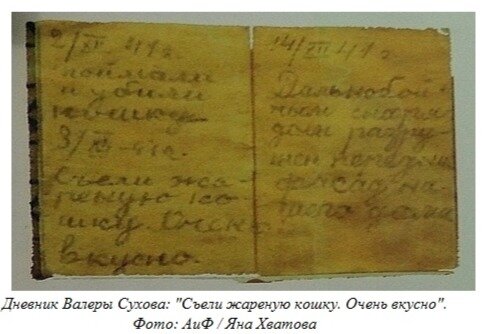 2/XII 41 г.
поймали
и убили
кошку.
3/XII-41г.
Съели жа-
реную ко-
шку. Очень
вкусно.
14/XII 41 г.
Дальнобой-
ным снаря-
дом разру-
шен
фасад на-
шего дома
Дневник Валеры Сухова: "Съели жареную кошку. Очень вкусно".
Фото: АиФ / Яна Хватова